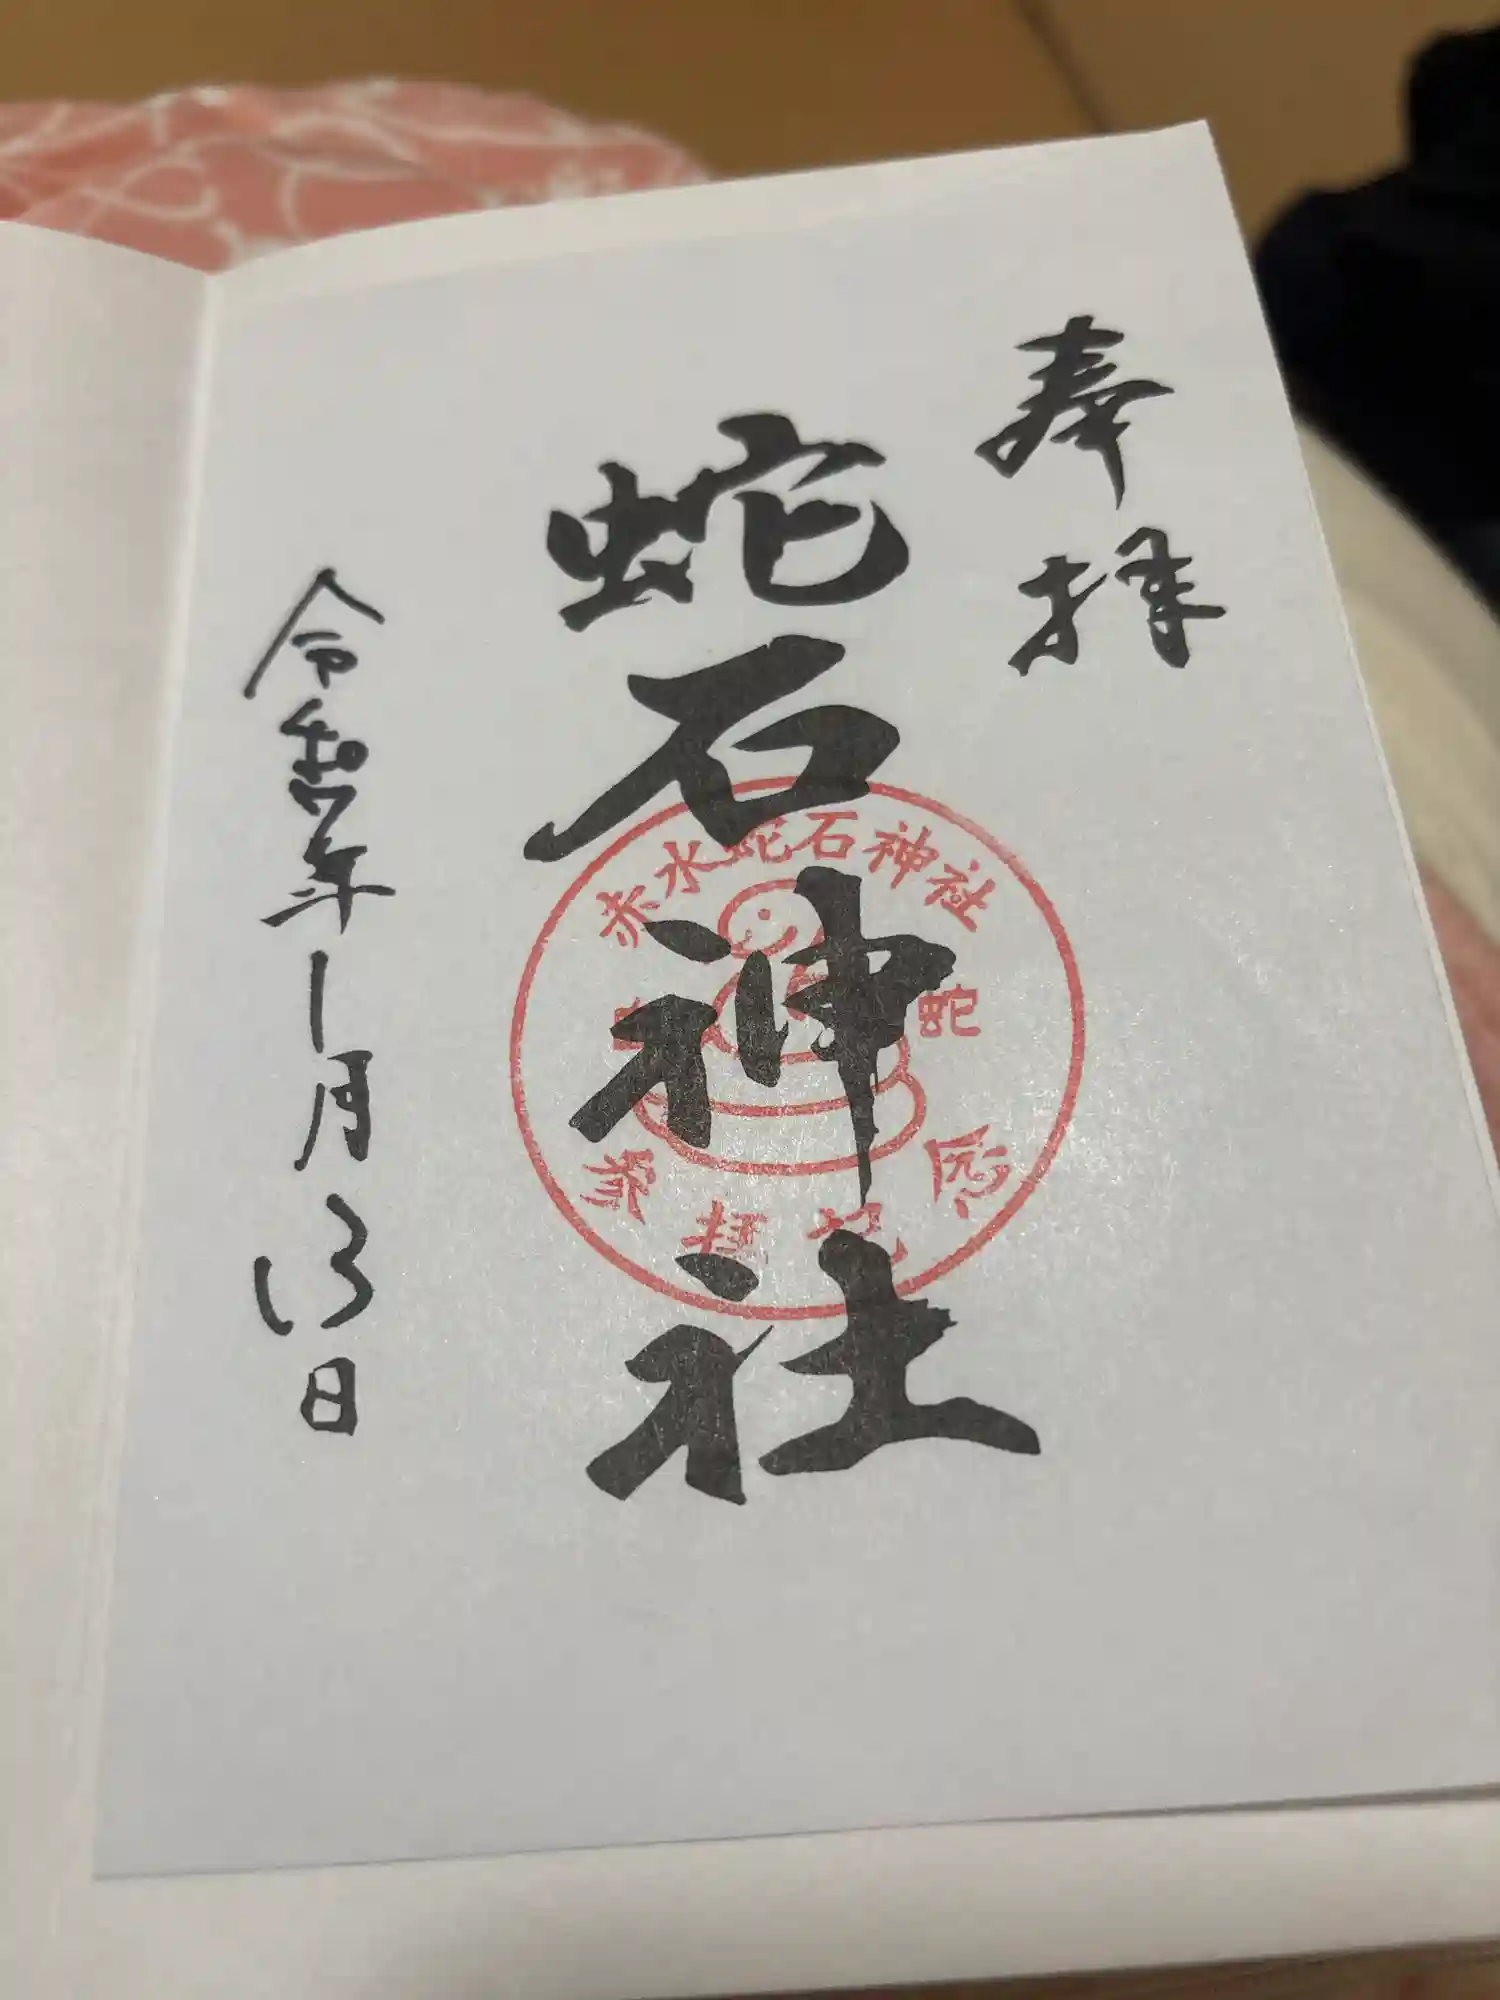 奉拝
蛇石神社
赤水蛇石神社
蛇
参拝記念
令和7年1月13日